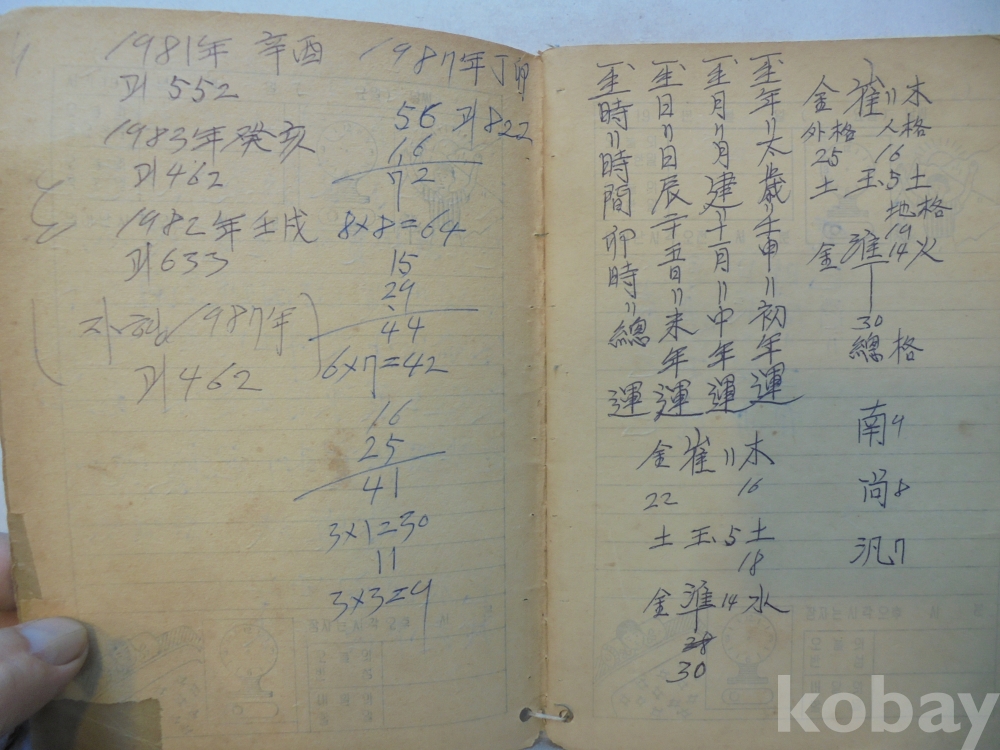 1981年 辛酉
괘 552
1983年 癸亥
괘 462
1982年 壬戌
괘 633
1987年
괘 462
1987年 丁卯
괘 822
56
16
72
8×8=64
15
29
44
6×7=42
16
25
41
3×1=30
11
3×3=9
金 崔〃木
外格 人格
25 16
土 玉 5 土
地格
19
金 準 14 火
30
總格
南 9
尚 8
汎 7
年〃太歲 壬申〃初年運
月〃月建 十一月〃中年運
日〃日辰 二十五日〃末年運
時〃時間 卯時〃總運
金 崔〃木
22 16
土 玉 5 土
18
金 準 14 水
28
30
kobay